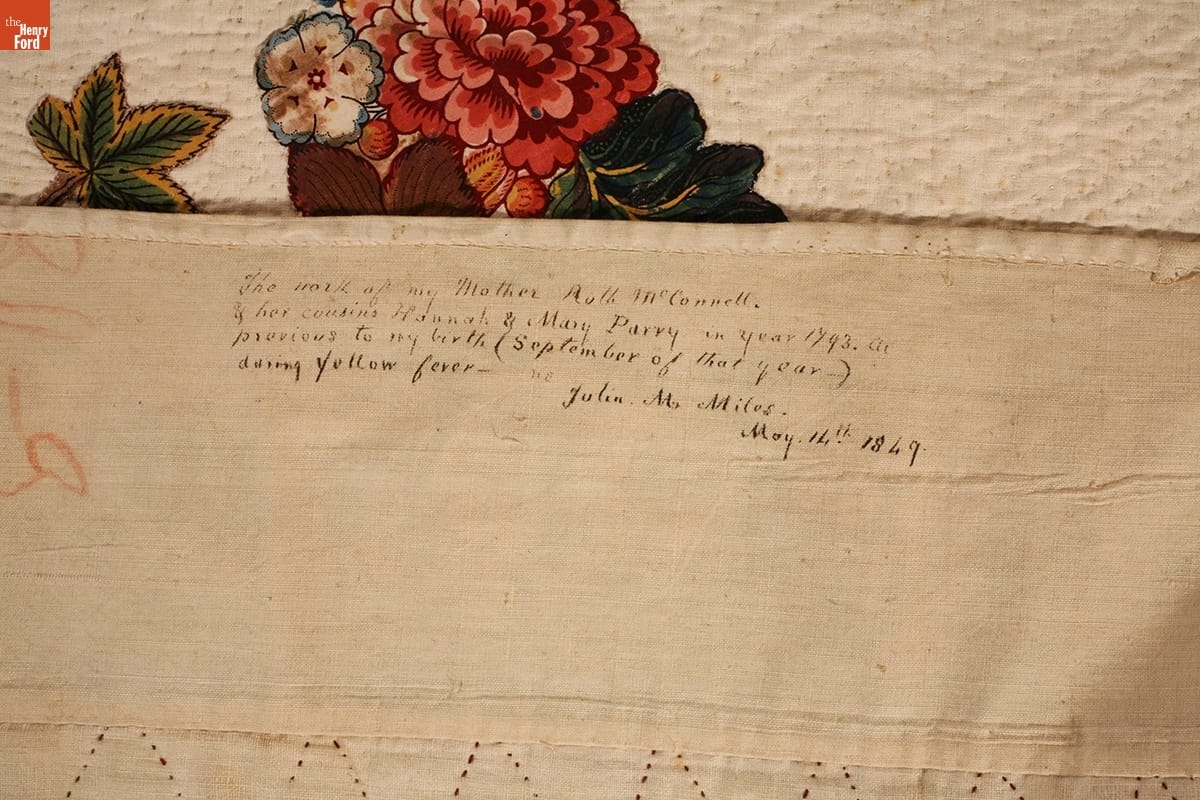 the
Henry
Ford
The work of my Mother Ruth McConnell.
& her cousins Hannah & Mary Parry in year 1793.
previous to my birth (September of that year—)
during Yellow fever—
Julia. M. Miles.
May. 14th 1849.